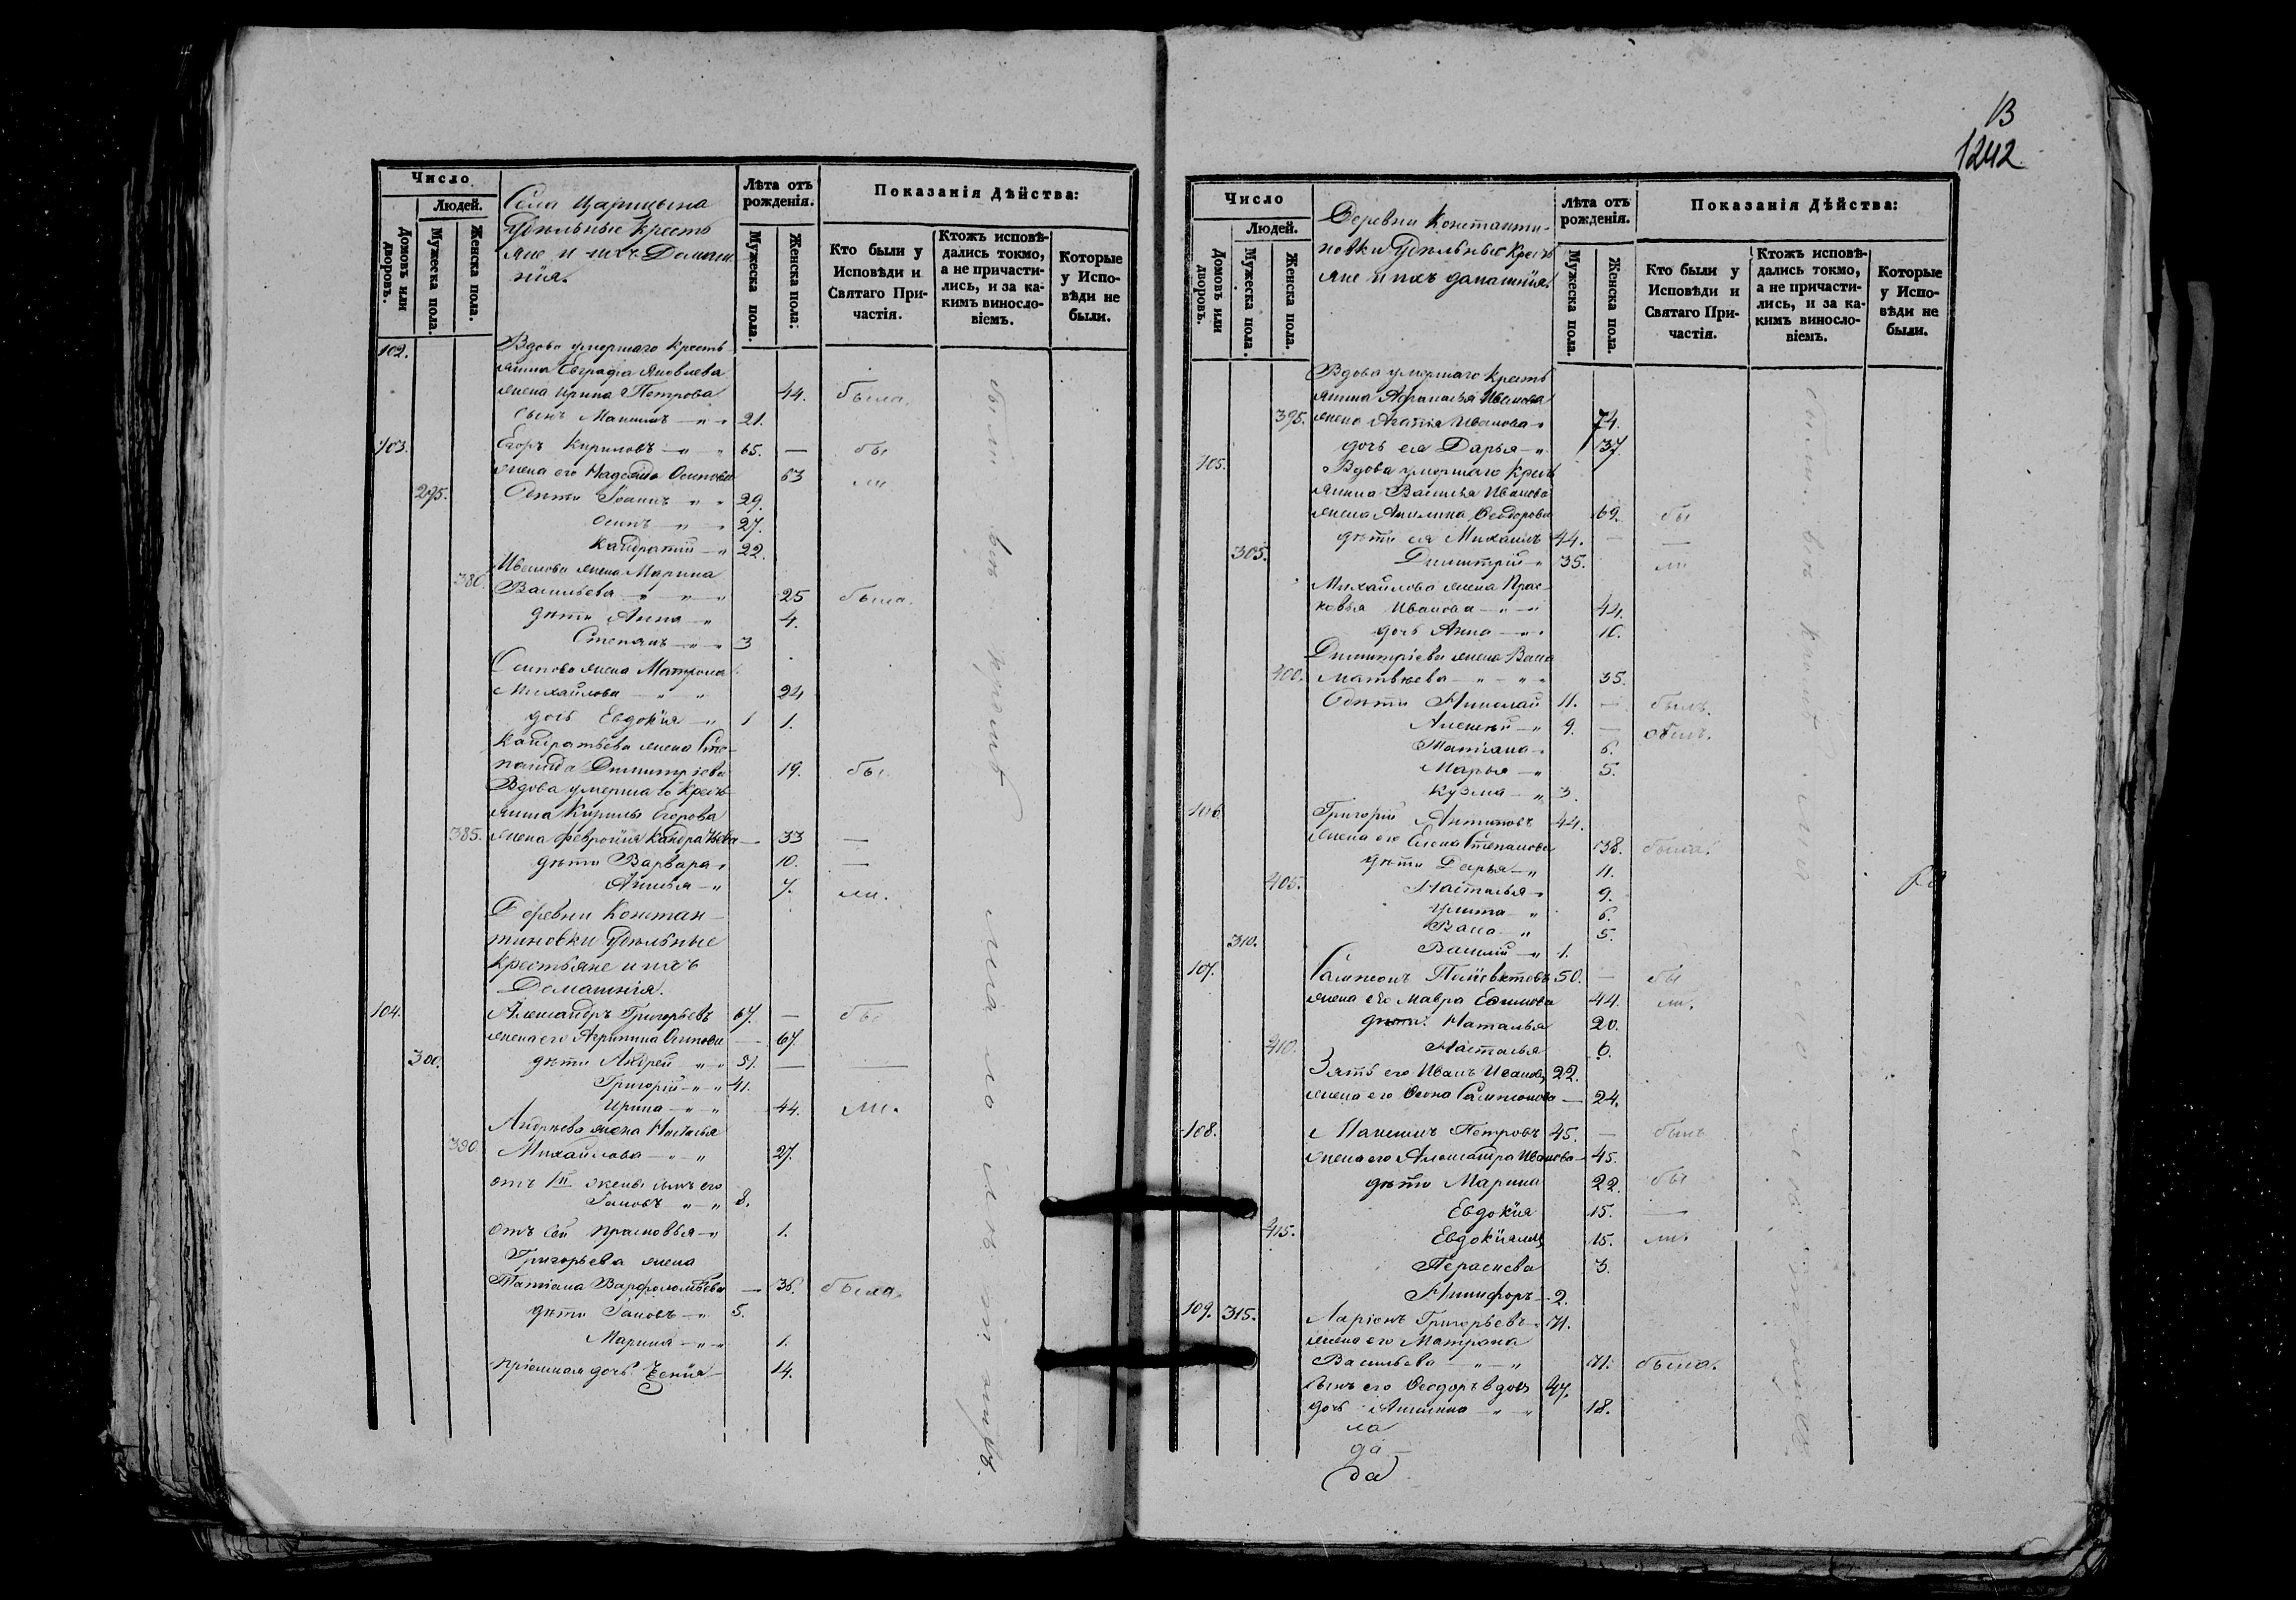 Число
Людей.
Домовъ или дворовъ.
Мужеска пола.
Женска пола.
Села Царицына
Удѣльные кресть
яне и ихъ Домаш
нія.
Лѣта отъ рожденія.
Мужеска пола.
Женска пола:
Показанія Дѣйства:
Кто были у Исповѣди и Святаго Причастія.
Ктожъ исповѣдались токмо, а не причастились, и за какимъ винословіемъ.
Которые у Исповѣди не были.
102. Вдова умершаго кресть
янина Евграфа Яковлева
жена Ирина Петрова 44. была.
сынъ Максимъ 21.
103. Егоръ Кириловъ 65. — бы
жена его Надежда Осипова 63 ли
295. Дѣти Іоаннъ 29.
Осипъ 27.
Кандратій 22.
Иванова жена Марина
380. Васильева 25 была.
дѣти Анна 4.
Степанъ 3
Осипова жена Матрона
Михайлова 24
дочь Евдокія 1 1.
Кандратьева жена Сте-
панида Димитріева 19. бы
Вдова умершаго Кресть
янина Кирилы Егорова
385. жена Февронія Кандратьева — 33 —
дѣти Варвара 10. —
7. ли.
Деревни Констан-
тиновки Удѣльные
крестьяне и ихъ
Домашнія.
104. Александръ Григорьевъ 67. — бы
жена его Агрипина Осипова — 67.
300. дѣти Андрей 51. — —
Григорій 41.
Ирина 44. ли.
Андреева жена Настасья
390 Михайлова 27.
отъ 1й жены сынъ его
Іаковъ 8.
отъ сей Прасковья 1.
Григорьева жена
Татіана Варфоломѣева — 36. была.
дѣти Іаковъ 5.
Марина 1.
Пріемная дочь Ксенія 14.
13
1242
Число
Людей.
Домовъ или дворовъ.
Мужеска пола.
Женска пола.
Деревни Константи-
новки Удѣльные Кресть
яне и ихъ домашнія.
Лѣта отъ рожденія.
Мужеска пола.
Женска пола.
Показанія Дѣйства:
Кто были у Исповѣди и Святаго Причастія.
Ктожъ исповѣдались токмо, а не причастились, и за какимъ винословіемъ.
Которые у Исповѣди не были.
Вдова умершаго Кресть
янина Афанасья Иванова
395. жена Агафія Иванова 74.
дочь ея Дарья 37.
105. Вдова умершаго Кресть
янина Василья Иванова
жена Акилина Ѳеодорова 69. бы
дѣти ея Михаилъ 44. — —
305. Димитрій 35. ли
Михайлова жена Прас-
ковья Иванова 44.
дочь Анна
Димитріева жена Васа
400. Матвѣева 35.
Дѣти Николай 11. — былъ.
Алексѣй 9. — былъ.
Татіана 6.
Марья 5.
Кузма 3.
106. Григорій Антиповъ 44.
жена его Елена Степанова 38. была.
дѣти Дарья 11.
405. Настасья 9.
Улита 6.
Васа 5.
310. Василій 1.
107. Сампсонъ 50. — бы
жена его Мавра Ефимова 44. ли.
дѣти Наталья 20.
410. Настасья 6.
Зять его Иванъ Ивановъ 22.
жена его Сампсонова — 24.
108. Максимъ Петровъ 45. — былъ
жена его Александра Иванова 45.
дѣти Марина 22. бы
Евдокія 15. —
415. 15. ли.
Параскева 3.
Никифоръ 2.
109. 315. Ларіонъ Григорьевъ 71.
жена его Матрона
Васильева 71. была.
сынъ его Ѳеодоръ вдовъ 47.
дочь Акилина 18.
ла
да
да